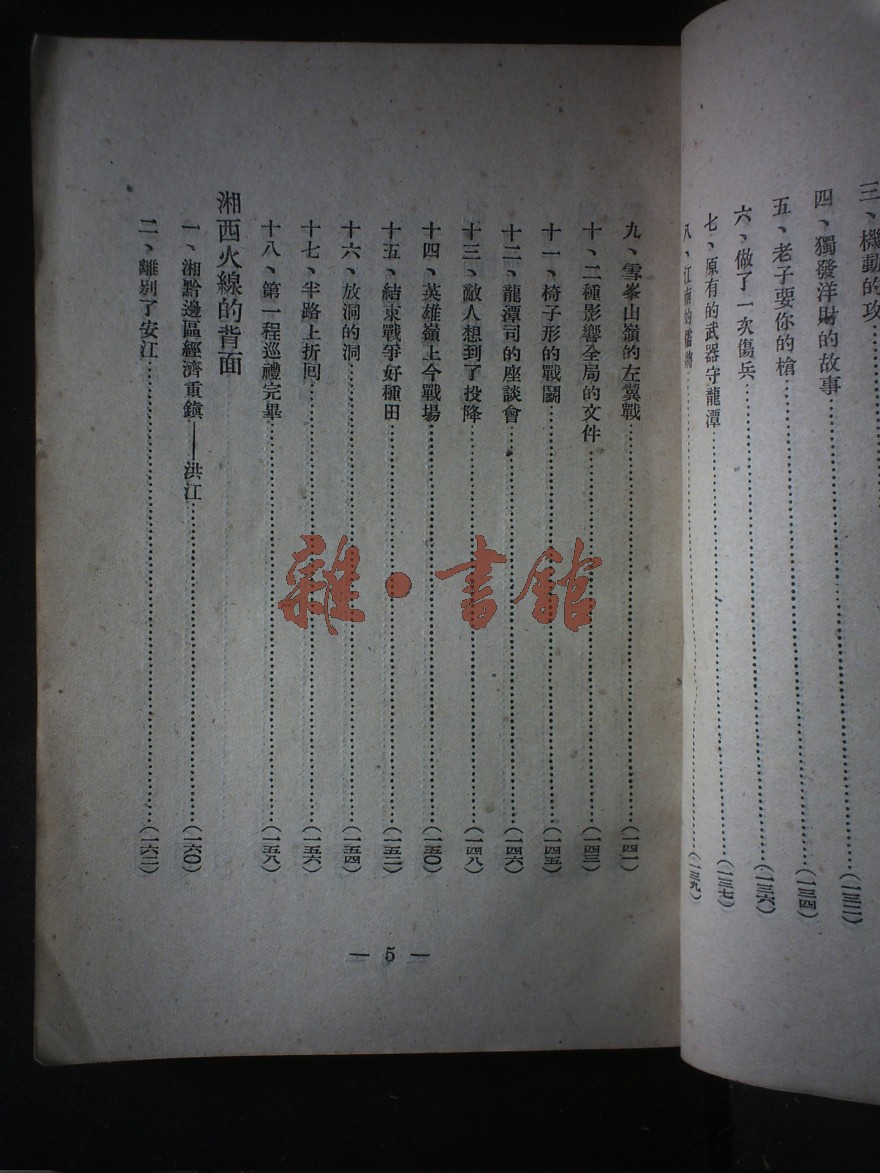 三、機動的攻………(一三二)
四、獨發洋財的故事………(一三四)
五、老子要你的槍………(一三六)
六、做了一次傷兵………(一三六)
七、原有的武器守龍潭………(一三七)
八、江南的………(一三九)
九、雪峯山嶺的左翼戰………(一四一)
十、二種影響全局的文件………(一四三)
十一、椅子形的戰鬭………(一四五)
十二、龍潭司的座談會………(一四六)
十三、敵人想到了投降………(一四八)
十四、英雄嶺上今戰場………(一五〇)
十五、結束戰爭好種田………(一五二)
十六、放洞的洞………(一五四)
十七、半路上折囘………(一五六)
十八、第一程巡禮完畢………(一五八)
湘西火線的背面
一、湘黔邊區經濟重鎮——洪江………(一六〇)
二、離別了安江………(一六二)
— 5 —
雜·書館